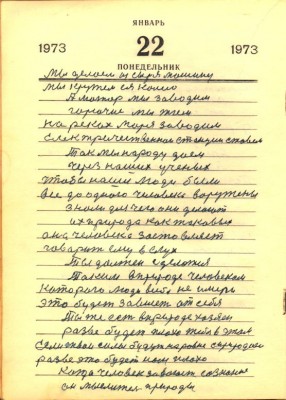 ЯНВАРЬ
1973 22 1973
ПОНЕДЕЛЬНИК
Мы делаем из сыря машину
мы крутем ея колесо
А мотор мы заводим
горючие мы жгем
на реках моря заводим
електричественная станции ставим
Так мы народу даем
через наших ученых
чтобы наши люди были
все до одного человека воружены
знали для чего они делают
их природа как таковых
она человека заставляет
говорить ему в слух
Ты должен сделатся
Таким в природе человеком
которого люди небе не имеръ
это будет зависеть от себя
Ты же есть в природе хозяин
разве будет плохо тебя в этом
если твои силы будут наровне с природой
разве это будет нам плохо
Когда человек завоюет сознание
он мыслитель природы